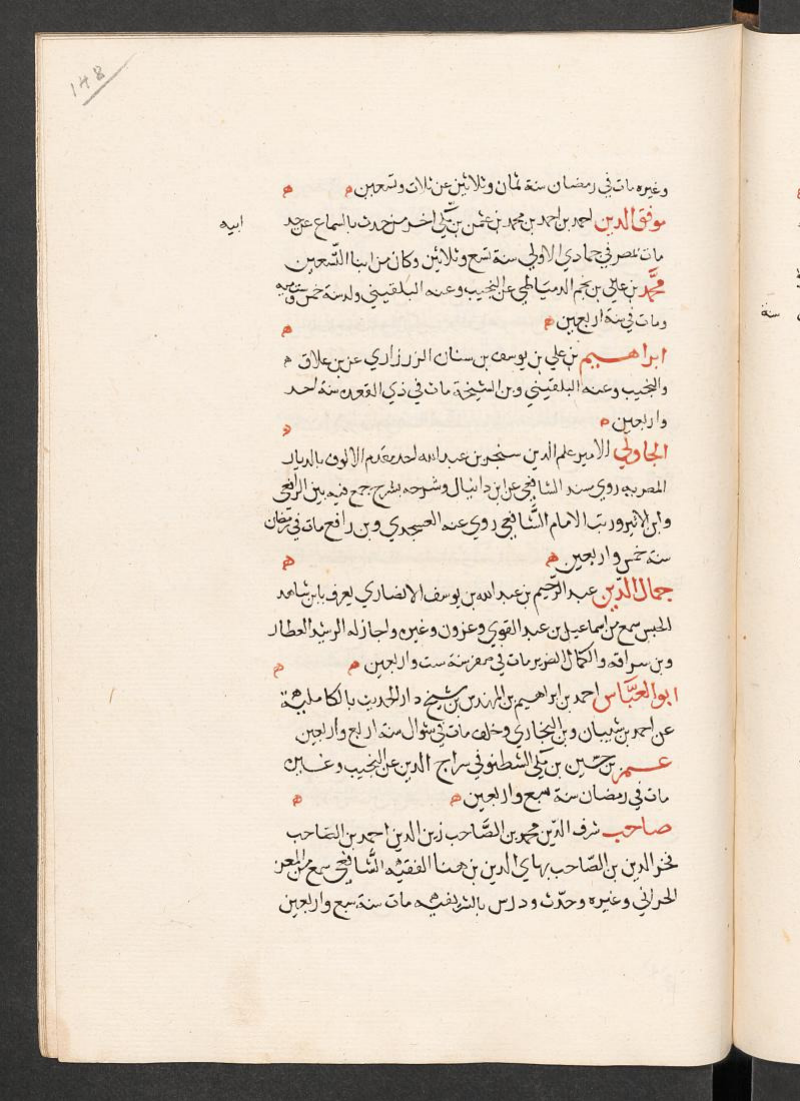 148
وغيره مات في رمضان سنة ثمان وثلاثين عن ثلاث وتسعين ه ه
موفق الدين احمد بن احمد بن محمد بن عثمن بن مكي اخر من حدث بالسماع عن جد
ابيه
مات بمصر في جمادي الاولي سنة تسع وثلاثين وكان من ابنا التسعين
محمد بن علي بن نجم الدمياطي عن النجيب وعنه البلقيني ولد سنة خمس وستميه
ومات في سنة اربعين ه ه
ابراهيم بن علي بن يوسف بن سنان الزرزاري عن بن علاق ه
والنجيب وعنه البلقيني وبن الشيخة مات في ذي القعده سنة احد
واربعين ه ه
الجاولي الامير علم الدين سنجر بن عبد الله احد مقدم الالوف بالديار
المصريه روي سند الشافعي عن ابن دانيال وشرحه بشرح جمع فيه بين الرافعي
وابن الاثير ورتب الامام الشافعي روي عنه العسجدي وبن رافع مات في رمضان
سنة خمس واربعين ه ه
جمال الدين عبد الرحيم بن عبد الله بن يوسف الانصاري يعرف بابن شاهد
الجيس سمع من اسماعيل بن عبد القوي وعزون وغيره واجاز له الرشيد العطار
وبن سراقه والكمال الضرير مات في صفر سنة ست واربعين ه ه
ابو العباس احمد بن ابراهيم بن المهندس بن شيخ دار الحديث بالكامليه
عن احمد بن شيبان وبن البخاري وخلف مات في شوال سنة اربع واربعين
عمر بن حسين بن مكي الشطنوفي سراج الدين عن النجيب وغيره
مات في رمضان سنة سبع واربعين ه ه
صاحب شرف الدين محمد بن الصاحب زين الدين احمد بن الصاحب
فخر الدين بن الصاحب بهاي الدين بن هنا الفقيه الشافعي سمع من المعز
الحراني وغيره وحدث ودرس بالشريفيه مات سنة سبع واربعين
سنة